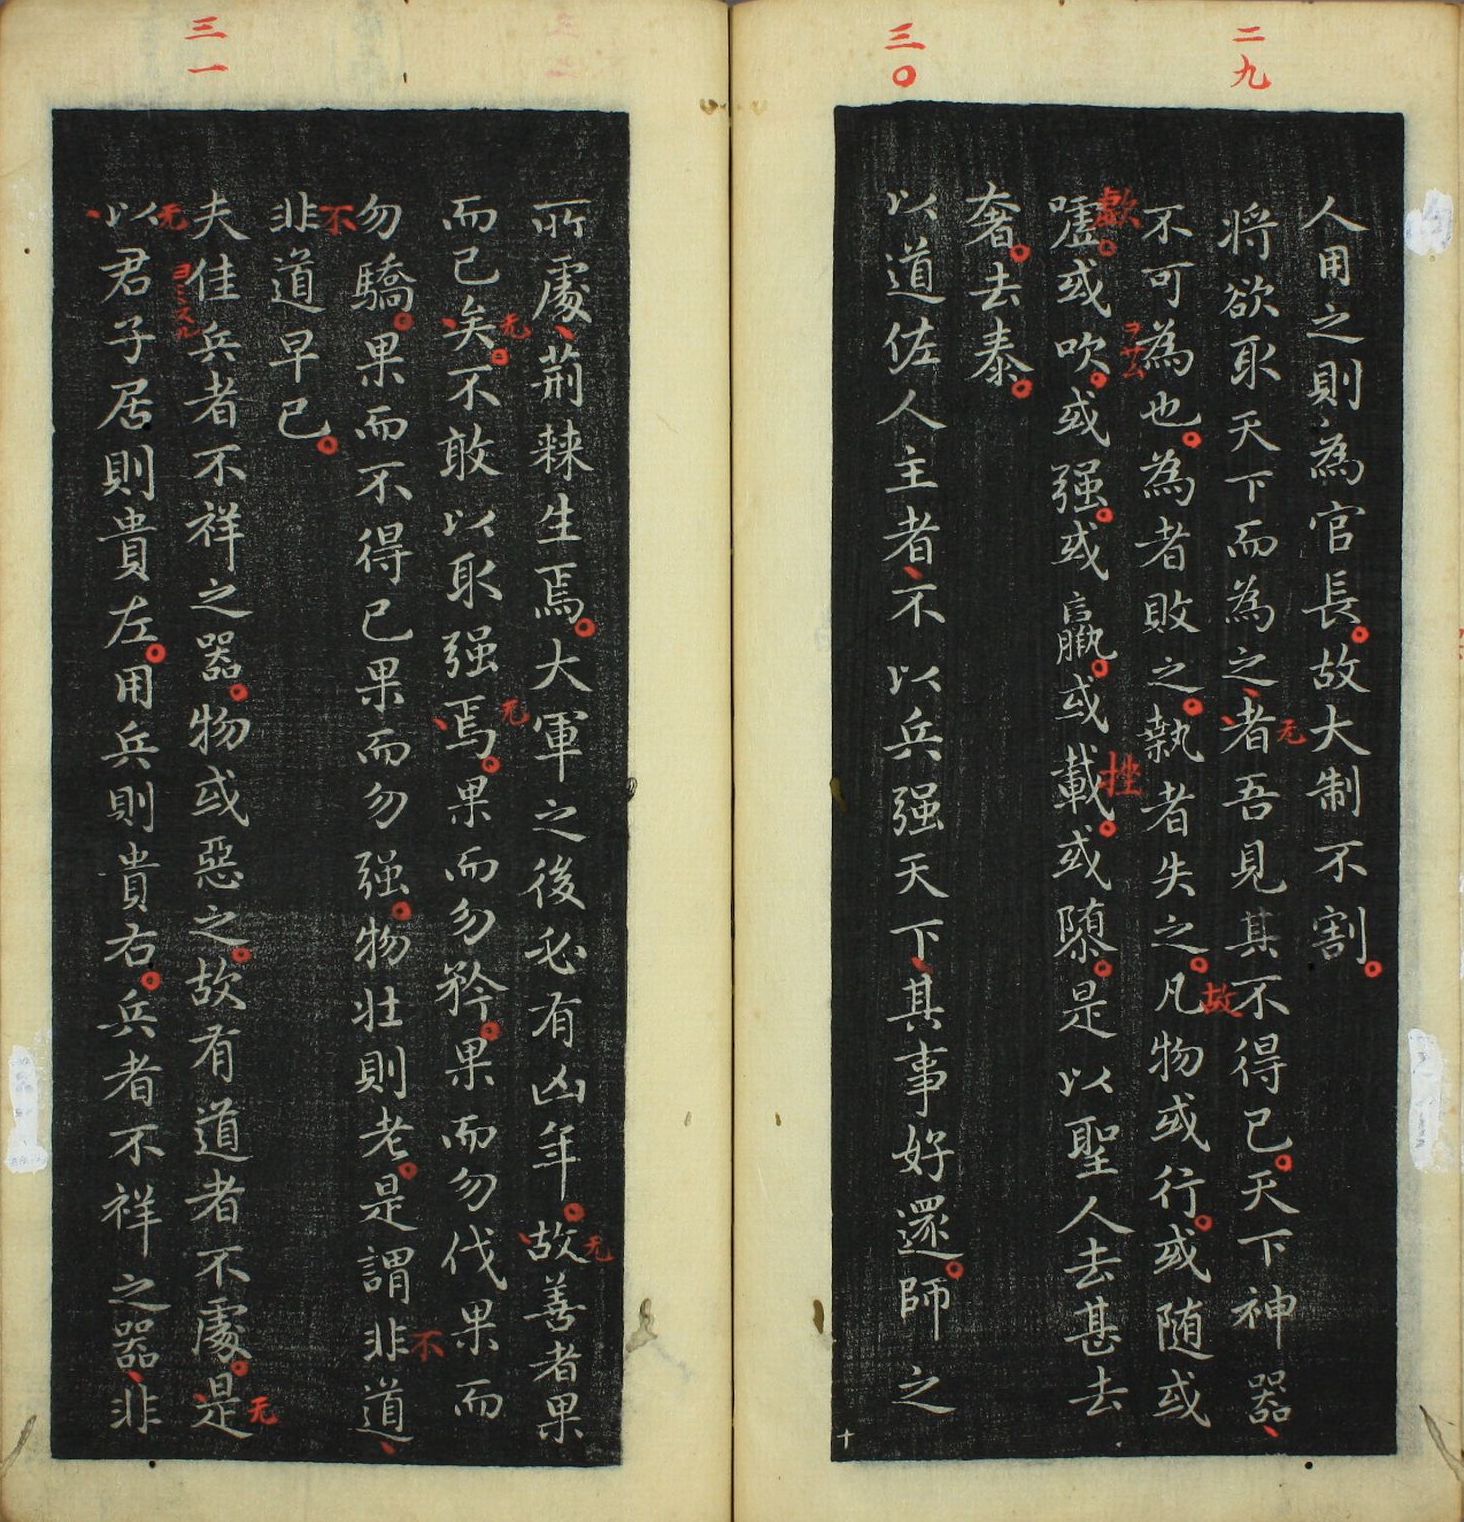 二九
三〇
人用之則為官長故大制不割
將欲取天下而為之者吾見其不得已天下神器
不可為也為者敗之執者失之凡物或行或随或
嘘或吹或强或羸或載或隳是以聖人去甚去
奢去泰
以道佐人主者不以兵强天下其事好還師之
十
无
ヲサム
故
歔
挫
三一
所處荊棘生焉大軍之後必有凶年故善者果
而已矣不敢以取强焉果而勿矜果而勿伐果而
勿驕果而不得已果而勿强物壮則老是謂非道
非道早已
夫佳兵者不祥之器物或惡之故有道者不處是
以君子居則貴左用兵則貴右兵者不祥之器非
无
无
无
不
不
无
无